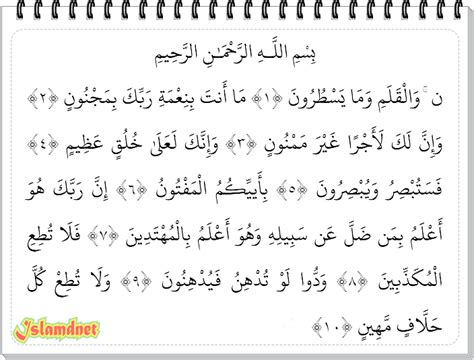 بِسْمِ اللَّـهِ الرَّحْمَـٰنِ الرَّحِيمِ
ن ۚ وَالْقَلَمِ وَمَا يَسْطُرُونَ ﴿١﴾ مَا أَنتَ بِنِعْمَةِ رَبِّكَ بِمَجْنُونٍ ﴿٢﴾
وَإِنَّ لَكَ لَأَجْرًا غَيْرَ مَمْنُونٍ ﴿٣﴾ وَإِنَّكَ لَعَلَىٰ خُلُقٍ عَظِيمٍ ﴿٤﴾
فَسَتُبْصِرُ وَيُبْصِرُونَ ﴿٥﴾ بِأَييِّكُمُ الْمَفْتُونُ ﴿٦﴾ إِنَّ رَبَّكَ هُوَ
أَعْلَمُ بِمَن ضَلَّ عَن سَبِيلِهِ وَهُوَ أَعْلَمُ بِالْمُهْتَدِينَ ﴿٧﴾ فَلَا تُطِعِ
الْمُكَذِّبِينَ ﴿٨﴾ وَدُّوا لَوْ تُدْهِنُ فَيُدْهِنُونَ ﴿٩﴾ وَلَا تُطِعْ كُلَّ
حَلَّافٍ مَّهِينٍ ﴿١٠﴾
Islamdnet